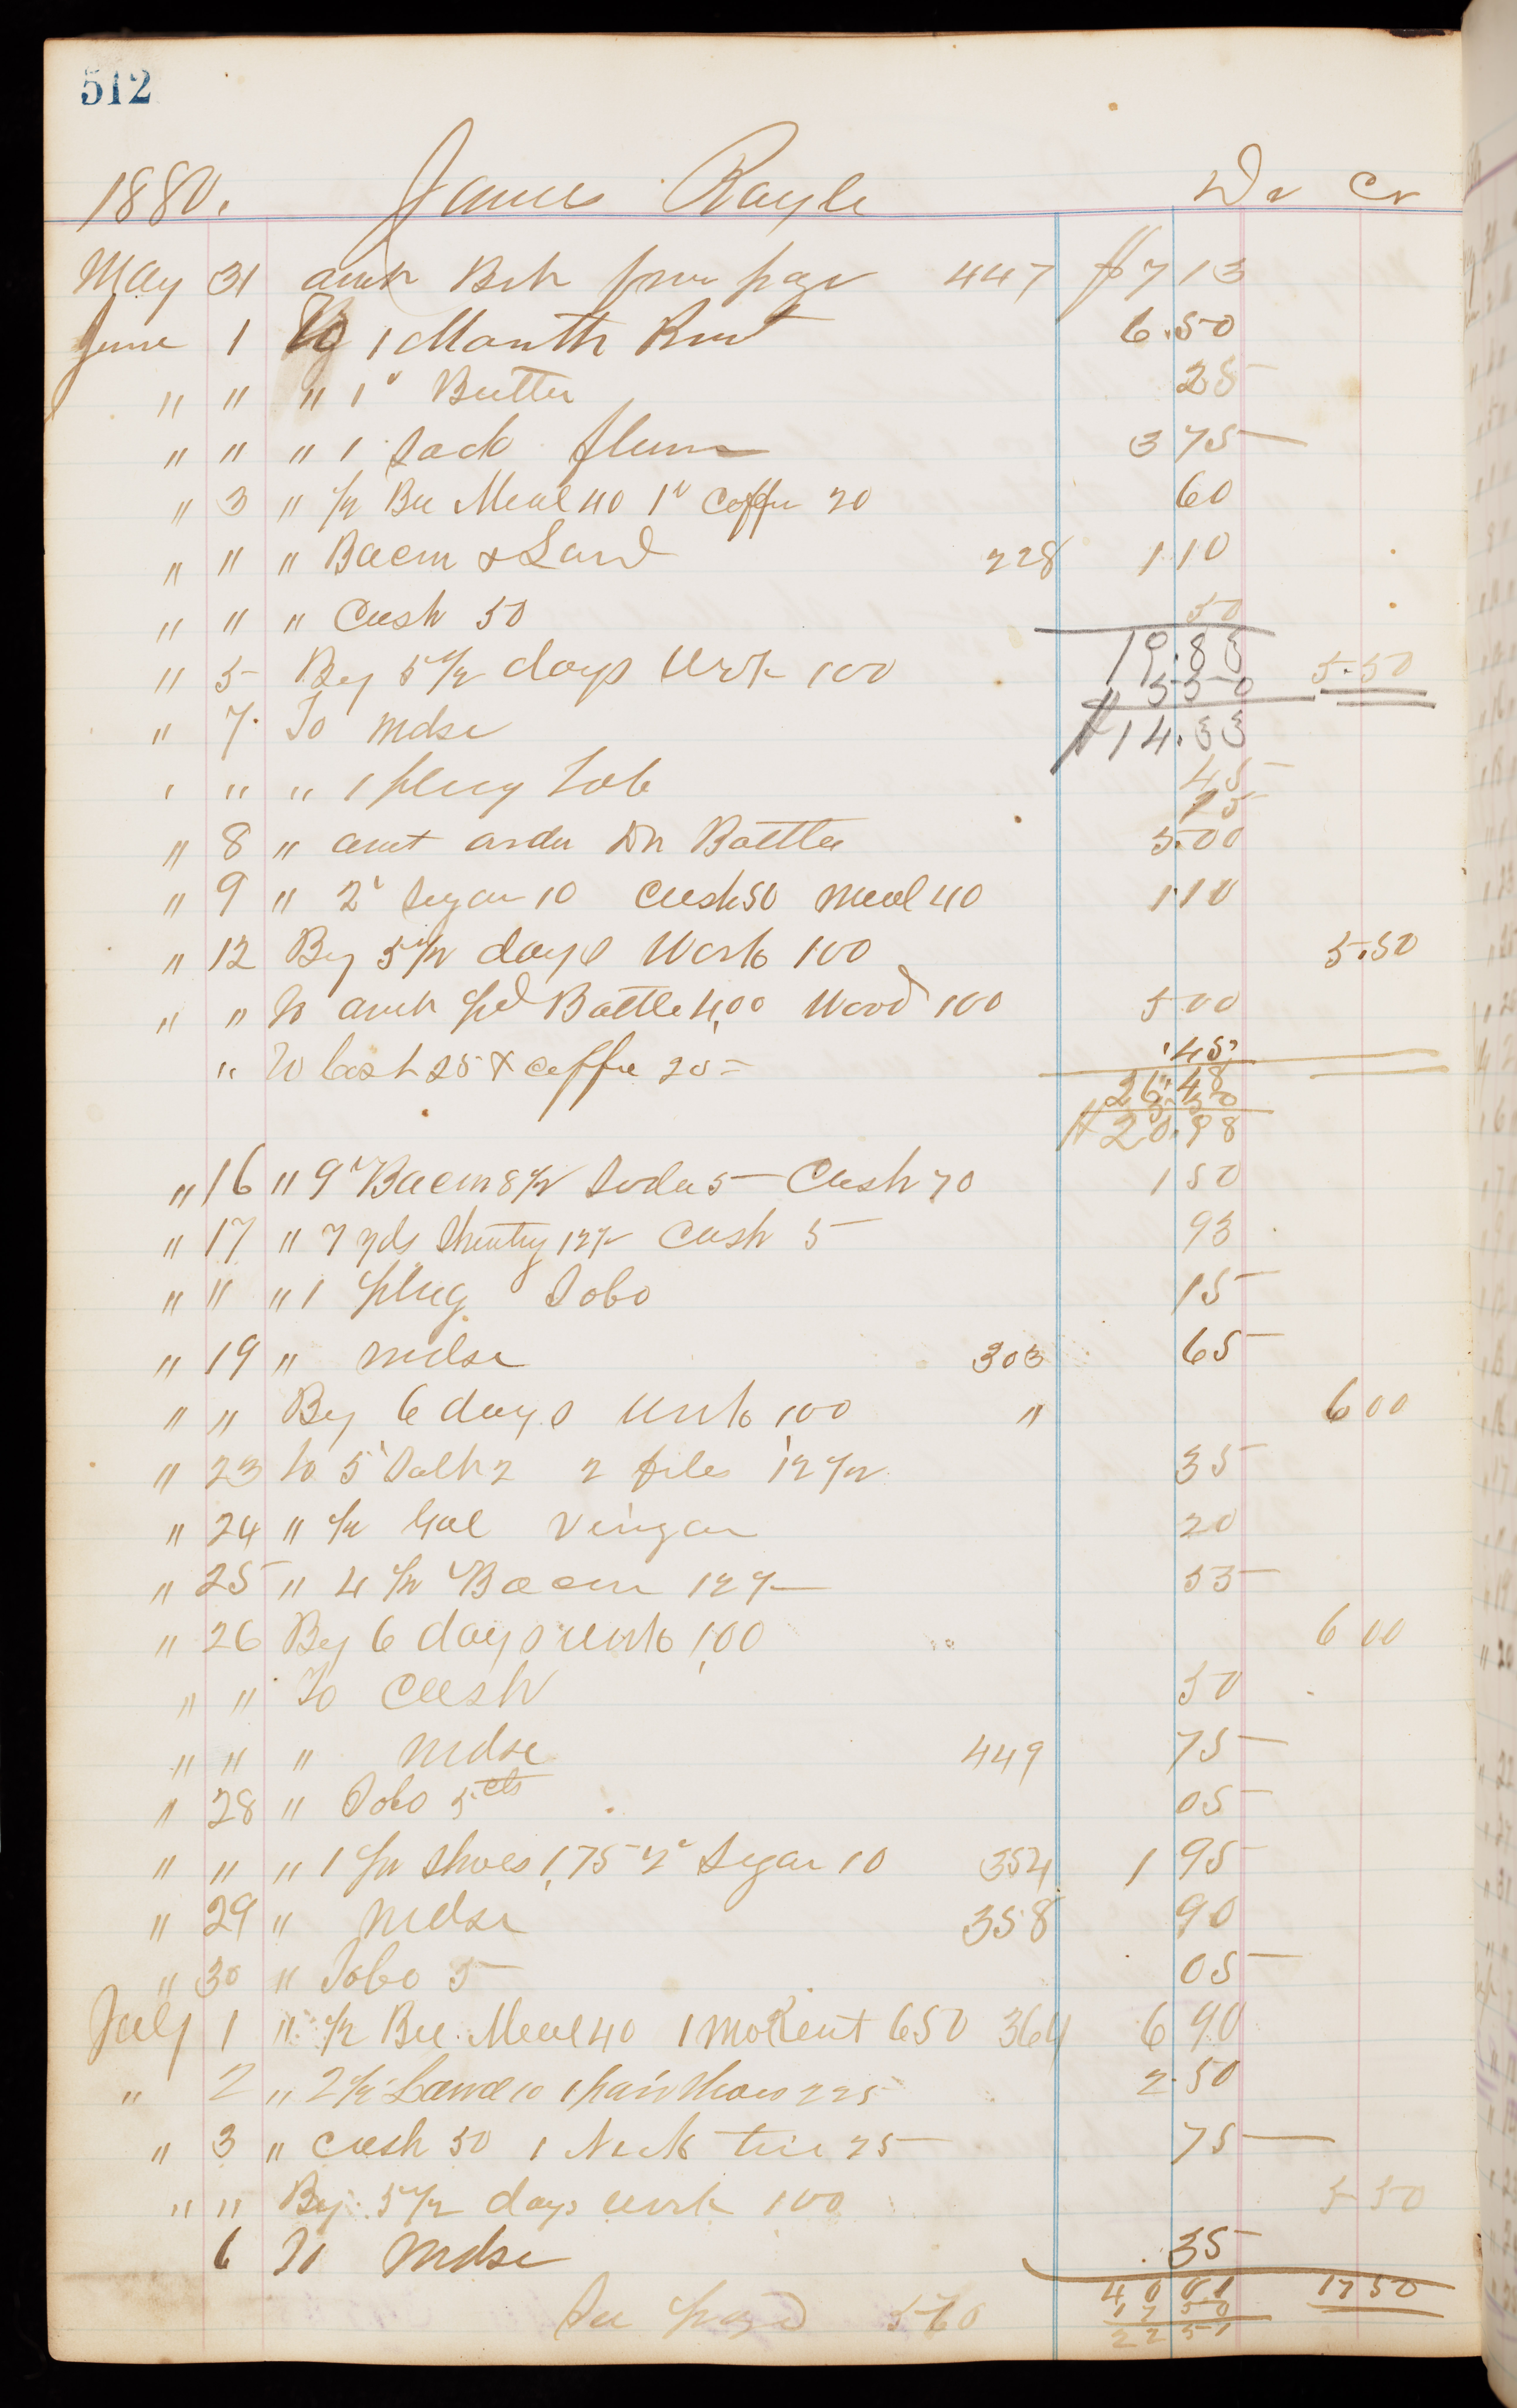 512
1880. James Rayle Dr Cr
May 31 amt Bt from page 447 $7 13
June 1 To 1 Month Rent 6.50
" " " 1" Butter 25
" " " 1 Sack flour 3 75
" 3 " 1/2 Bu Meal 40 1" Coffee 20 60
" " " Bacon & Lard 228 1 10
" " " Cash 50 50
19.83
" 5 By 5 1/2 days Work 100 5.50
5 50
" 7. To Mdse 45
$14.33
" " " 1 plug Tob 25
" 8 " amt order Dn Battle 5.00
" 9 " 2" Sugar 10 Cash 50 Meal 40 1 10
" 12 By 5 1/2 days Work 100 5.50
" " To amt pd Battle 4,00 Wood 100 5 00
" To Cash 25 & Coffee 20 = 45
26.48
5 50
$20.98
" 16 " 9" Bacon 8 1/2 Soda 5 Cash 70 1 50
" 17 " 7 yds Sheeting 12 1/2 Cash 5 93
" " " 1 plug Tobo 15
" 19 " Mdse 303 65
" " By 6 days Work 100 " 6 00
" 23 To 5" Salt 2 2 files 12 1/2 35
" 24 " 1/2 Gal Vingar 20
" 25 " 4 1/2 " Bacon 12 1/2 53
" 26 By 6 days Work 1,00 6 00
" " To Cash 50
" " " Mdse 449 75
" 28 " Tobo 5 cts 05
" " " 1 pr Shoes 1,75 2" Sugar 10 354 1 95
" 29 " Mdse 358 90
" 30 " Tobo 5 05
July 1 " 1/2 Bu Meal 40 1 mo Rent 650 364 6 90
" 2 " 2 1/2" Lard 10 1 pair Shoes 225 2.50
" 3 " Cash 50 1 Neck tie 25 75
" " By 5 1/2 days Work 100 5 50
6 To Mdse 35
40 01 17 50
17 50
See page 570 22 51